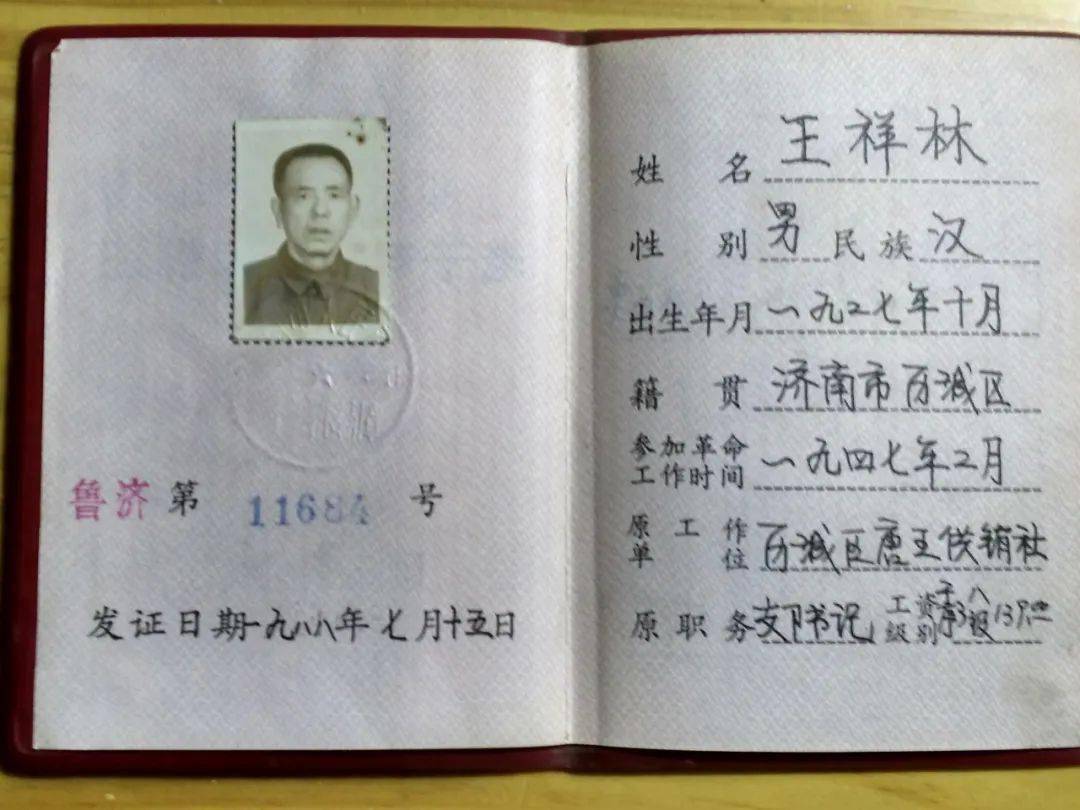 鲁济第 11684 号
发证日期一九八八年七月十五日
姓名 王祥林
性别 男 民族 汉
出生年月 一九二七年十月
籍贯 济南市历城区
参加革命工作时间 一九四七年二月
原工作单位 历城区唐王供销社
原职务 支部书记 工资级别 八级